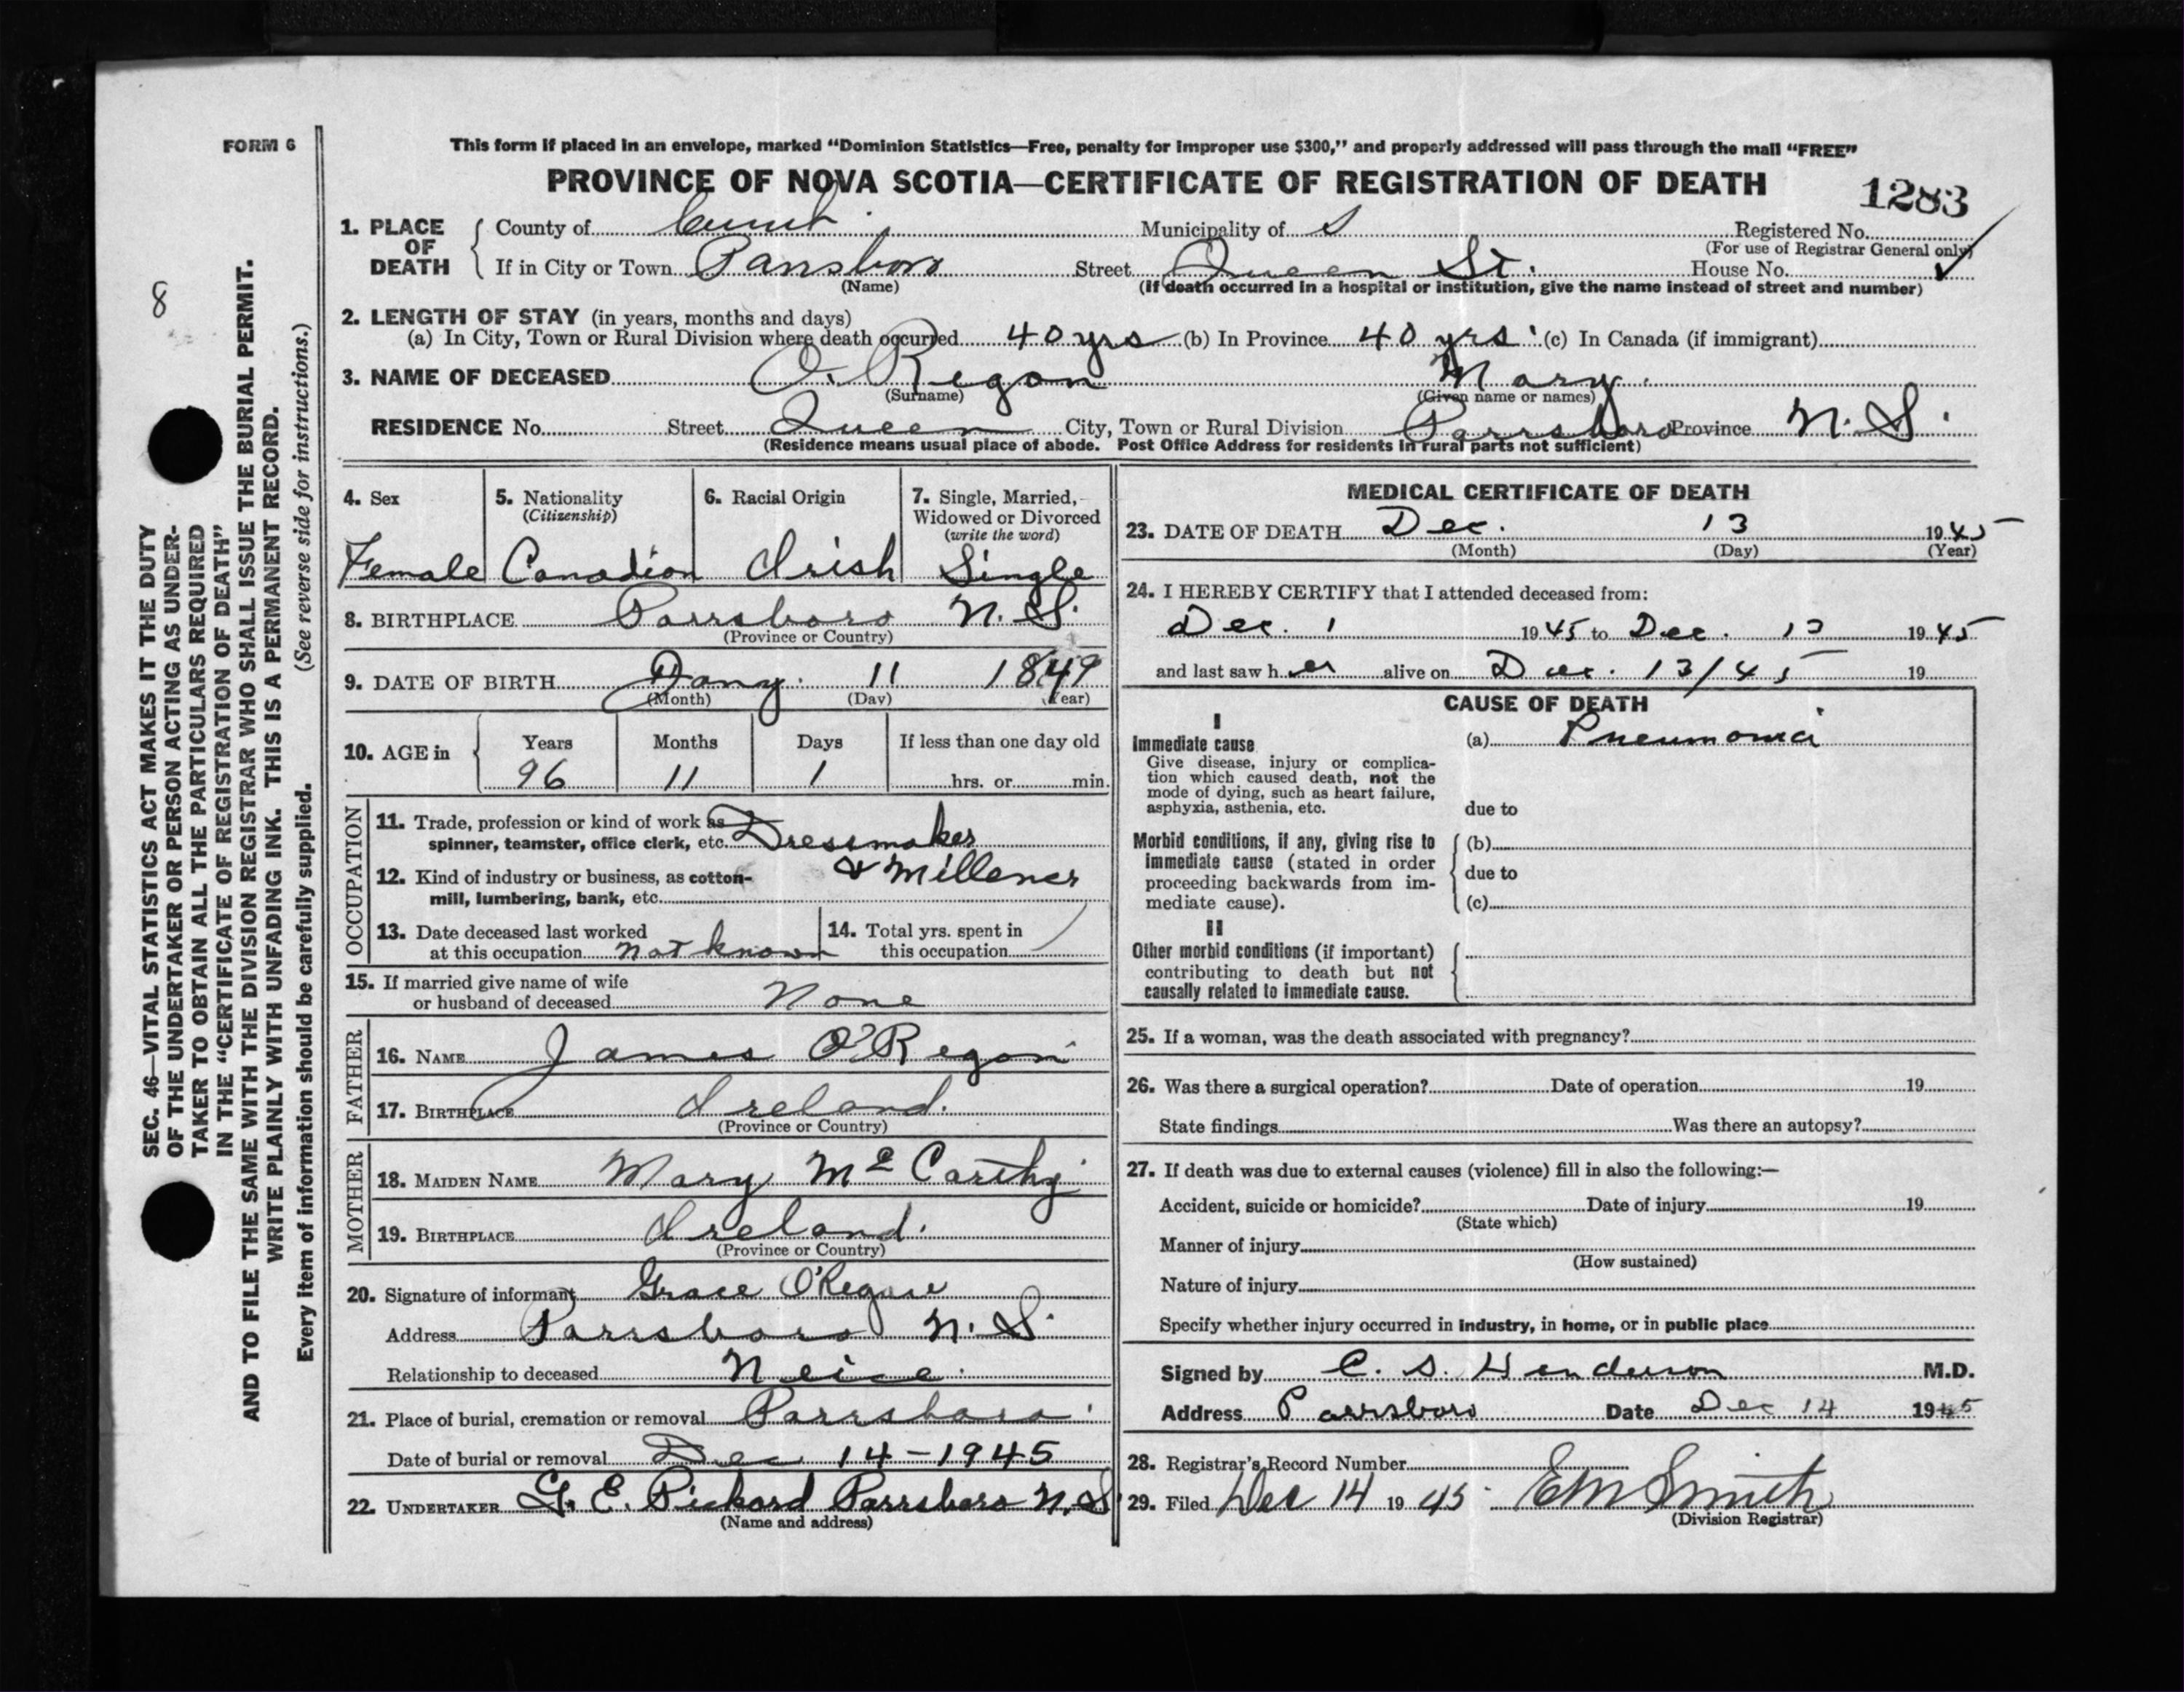 FORM 6
This form if placed in an envelope, marked “Dominion Statistics—Free, penalty for improper use $300,” and properly addressed will pass through the mail “FREE”
PROVINCE OF NOVA SCOTIA—CERTIFICATE OF REGISTRATION OF DEATH
1283
1. PLACE OF DEATH County of Cumb. Municipality of Registered No.
(For use of Registrar General only)
If in City or Town Parrsboro Street Queen St. House No.
(Name) (If death occurred in a hospital or institution, give the name instead of street and number)
2. LENGTH OF STAY (in years, months and days)
(a) In City, Town or Rural Division where death occurred 40 yrs (b) In Province 40 yrs (c) In Canada (if immigrant)
3. NAME OF DECEASED O. Regan Mary.
(Surname) (Given name or names)
RESIDENCE No. Street Queen City, Town or Rural Division Parrsboro Province N.S.
(Residence means usual place of abode. Post Office Address for residents in rural parts not sufficient)
4. Sex 5. Nationality 6. Racial Origin 7. Single, Married,
(Citizenship) Widowed or Divorced
(write the word)
Female Canadian Irish Single
8. BIRTHPLACE Parrsboro N.S.
(Province or Country)
9. DATE OF BIRTH Jany. 11 1849
(Month) (Day) (Year)
10. AGE in Years Months Days If less than one day old
96 11 1 hrs. or min.
OCCUPATION
11. Trade, profession or kind of work as
spinner, teamster, office clerk, etc. Dressmaker
12. Kind of industry or business, as cotton- & Millener
mill, lumbering, bank, etc.
13. Date deceased last worked 14. Total yrs. spent in
at this occupation not known this occupation
15. If married give name of wife
or husband of deceased None
FATHER
16. NAME James O'Regan
17. BIRTHPLACE Ireland.
(Province or Country)
MOTHER
18. MAIDEN NAME Mary Mc Carthy
19. BIRTHPLACE Ireland.
(Province or Country)
20. Signature of informant Grace O'Regan
Address Parrsboro N.S.
Relationship to deceased Neice.
21. Place of burial, cremation or removal Parrsboro
Date of burial or removal Dec 14-1945
22. UNDERTAKER G. E. Pickard Parrsboro N.S
(Name and address)
MEDICAL CERTIFICATE OF DEATH
23. DATE OF DEATH Dec. 13 1945
(Month) (Day) (Year)
24. I HEREBY CERTIFY that I attended deceased from:
Dec. 1 1945 to Dec. 13 1945
and last saw her alive on Dec. 13/45 19
CAUSE OF DEATH
I
Immediate cause (a) Pneumonia
Give disease, injury or complica-
tion which caused death, not the
mode of dying, such as heart failure,
asphyxia, asthenia, etc. due to
Morbid conditions, if any, giving rise to (b)
immediate cause (stated in order
proceeding backwards from im- due to
mediate cause). (c)
II
Other morbid conditions (if important)
contributing to death but not
causally related to immediate cause.
25. If a woman, was the death associated with pregnancy?
26. Was there a surgical operation? Date of operation 19
State findings Was there an autopsy?
27. If death was due to external causes (violence) fill in also the following:—
Accident, suicide or homicide? Date of injury 19
(State which)
Manner of injury
(How sustained)
Nature of injury
Specify whether injury occurred in industry, in home, or in public place
Signed by C. S. Henderson M.D.
Address Parrsboro Date Dec 14 1945
28. Registrar's Record Number
29. Filed Dec 14 1945 EM Smith
(Division Registrar)
8
SEC. 46—VITAL STATISTICS ACT MAKES IT THE DUTY
OF THE UNDERTAKER OR PERSON ACTING AS UNDER-
TAKER TO OBTAIN ALL THE PARTICULARS REQUIRED
IN THE “CERTIFICATE OF REGISTRATION OF DEATH”
AND TO FILE THE SAME WITH THE DIVISION REGISTRAR WHO SHALL ISSUE THE BURIAL PERMIT.
WRITE PLAINLY WITH UNFADING INK. THIS IS A PERMANENT RECORD.
Every item of information should be carefully supplied. (See reverse side for instructions.)